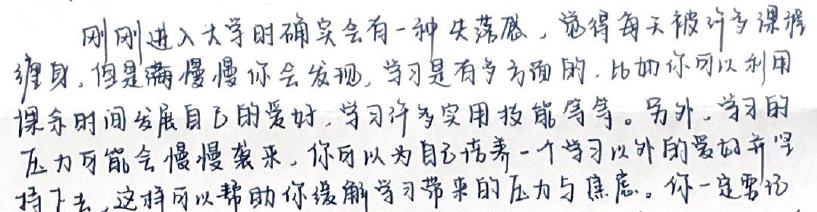 刚刚进入大学时确实会有一种失落感，觉得每天被许多课程
缠身，但是满慢慢你会发现，学习是有多方面的，比如你可以利用
课余时间发展自己的爱好，学习许多实用技能等等。另外，学习的
压力可能会慢慢袭来，你可以为自己培养一个学习以外的爱好并坚
持下去，这将可以帮助你缓解学习带来的压力与焦虑。你一定要记